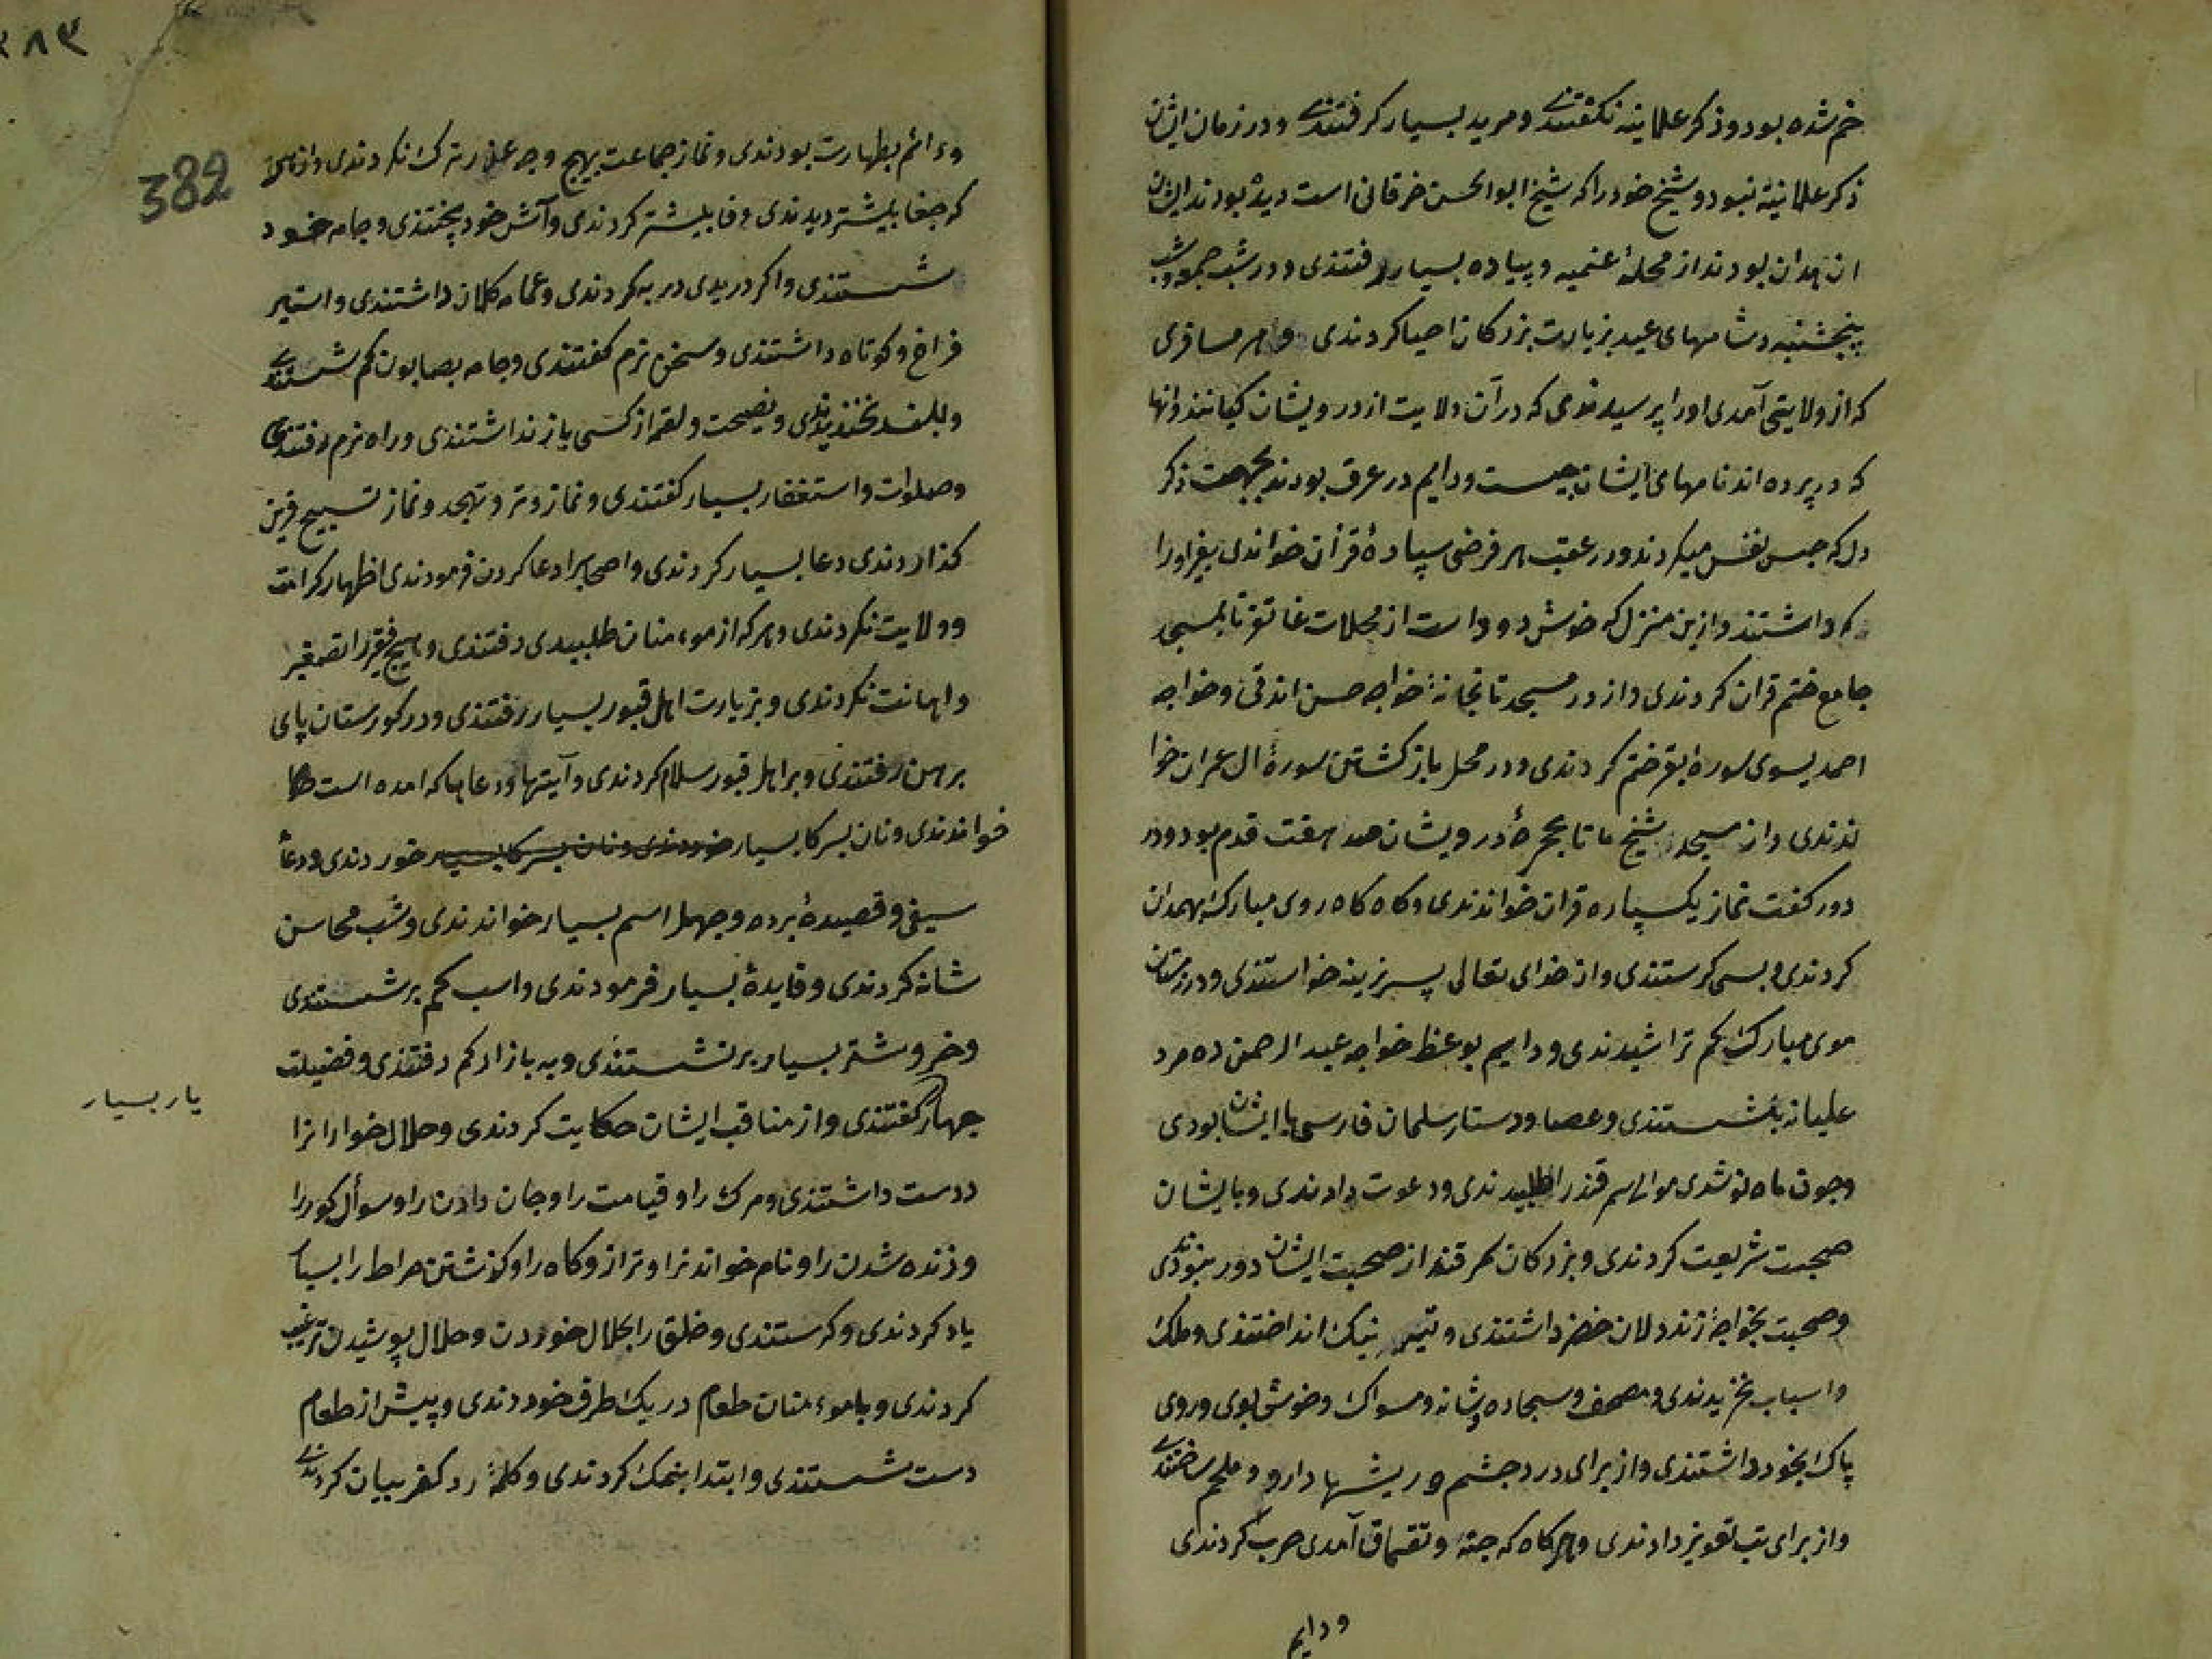 خم شده بود و ذکر علانیه نکفتندی و مرید بسیار کرفتندی و در زمان ایشان
ذکر علانیة نبود و شیخ خود را که شیخ ابوالحسن خرقانی است دیده بودند ایشان
از همدان بودند از محلهٔ و پیاده بسیار رفتندی و در شب جمعه و شب
پنجشنبه و شامهای عید بزیارت بزرکان احیا کردندی و هر مسافری
که از ولایتی آمدی او را پرسیدندی که در آن ولایت از درویشان کیانند و آنها
که در پرده اند نامهای ایشان چیست و دایم در عرق بودند بجهت ذکر
دل که حبس نفس میکردند و در عقب هر فرضی سپارهٔ قرآن خواندی بغیر اورا
که داشتند و ازین منزل که خوش رود است از محلات غاتفر تا بمسجد
جامع ختم قران کردندی و از در مسجد تا بخانهٔ خواجه حسن اندقی و خواجه
احمد یسوی سورهٔ بقره ختم کردندی و در محل باز کشتن سورهٔ ال عمران خوا
ندندی و از مسجد شیخ ما تا بحجرهٔ درویشان صد هفت قدم بود و در
دو رکعت نماز یکسپاره قران خواندندی و کاه کاه روی مبارک بهمدان
کردندی و بسی کرستندی و از خدای تعالی پسر نرینه خواستندی و در زمستان
موی مبارک کم تراشیدندی و دایم بوعظ خواجه عبد الرحمن ده مرد
علیانه بنشستندی و عصا و دستار سلمان فارسی با ایشان بودی
و چون ماه نو شدی موالی سمرقند را طلبیدندی و دعوت دادندی و با ایشان
صحبت شریعت کردندی و بزرکان سمرقند از صحبت ایشان دور نبودندی
و صحبت بخواجهٔ زنده دلان خضر داشتندی و تیر نیک انداختندی و ملک
و اسباب نخریدندی و مصحف و سجاده و شانه و مسواک و خوش بوی و روی
پاک بخود داشتندی و از برای درد چشم و ریشها دارو و ملحم ساختندی
و از برای تب تعویذ دادندی و هر کاه که جته و تقماق آمدی حرب کردندی
و دایم
۳۸۳
382
و دائم بطهارت بودندی و نماز جماعت بهیچ وجه عذر ترک نکردندی و از
که جفا بیشتر دیدندی وفا بیشتر کردندی و آش خود پختندی و جامه خود
شستندی و اکر دریدی در به کردندی و عمامه کلان داشتندی و استیر
فراخ و کوتاه داشتندی و سخن نرم کفتندی و جامه بصابون کم شستندی
و بلند نخندیدندی و نصیحت و لقمه از کسی باز نداشتندی و راه نرم رفتندی
و صلوات و استغفار بسیار کفتندی و نماز وتر و تهجد و نماز تسبیح
کذاردندی دعا بسیار کردندی و اصحابرا دعا کردن فرمودندی اظهار کرامت
و ولایت نکردندی و هر که از موءمنان طلبیدی رفتندی و هیچ فقیر را تصغیر
و اهانت نکردندی و بزیارت اهل قبور بسیار رفتندی و در کورستان پای
برهن رفتندی و بر اهل قبور سلام کردندی و آیتها و دعاها که امده است
خواندندی و نان بسرکا بسیار خوردندی و نان بسرکا بسیار خوردندی و دعا
سیفی و قصیدهٔ برده و چهل اسم بسیار خواندندی و شب محاسن
شانه کردندی و فایدهٔ بسیار فرمودندی و اسب کم بر شستندی
و خر و شتر بسیار بر نشستندی و به بازار کم رفتندی و فضیلت
چهار یار بسیار کفتندی و از مناقب ایشان حکایت کردندی و حلال خوارانرا
دوست داشتندی و مرک را و قیامت را و جان دادن را و سوأل کور را
و زنده شدن را و نام خواندنرا و ترازو کاه را و کذشتن صراط را بسیا
یاد کردندی و کرستندی و خلق را بحلال خوردن و حلال پوشیدن ترغیب
کردندی و با موءمنان طعام در یک طرف خوردندی و پیش از طعام
دست شستندی و ابتدا بنمک کردندی و کلمهٔ رد کفر بیان کردندی